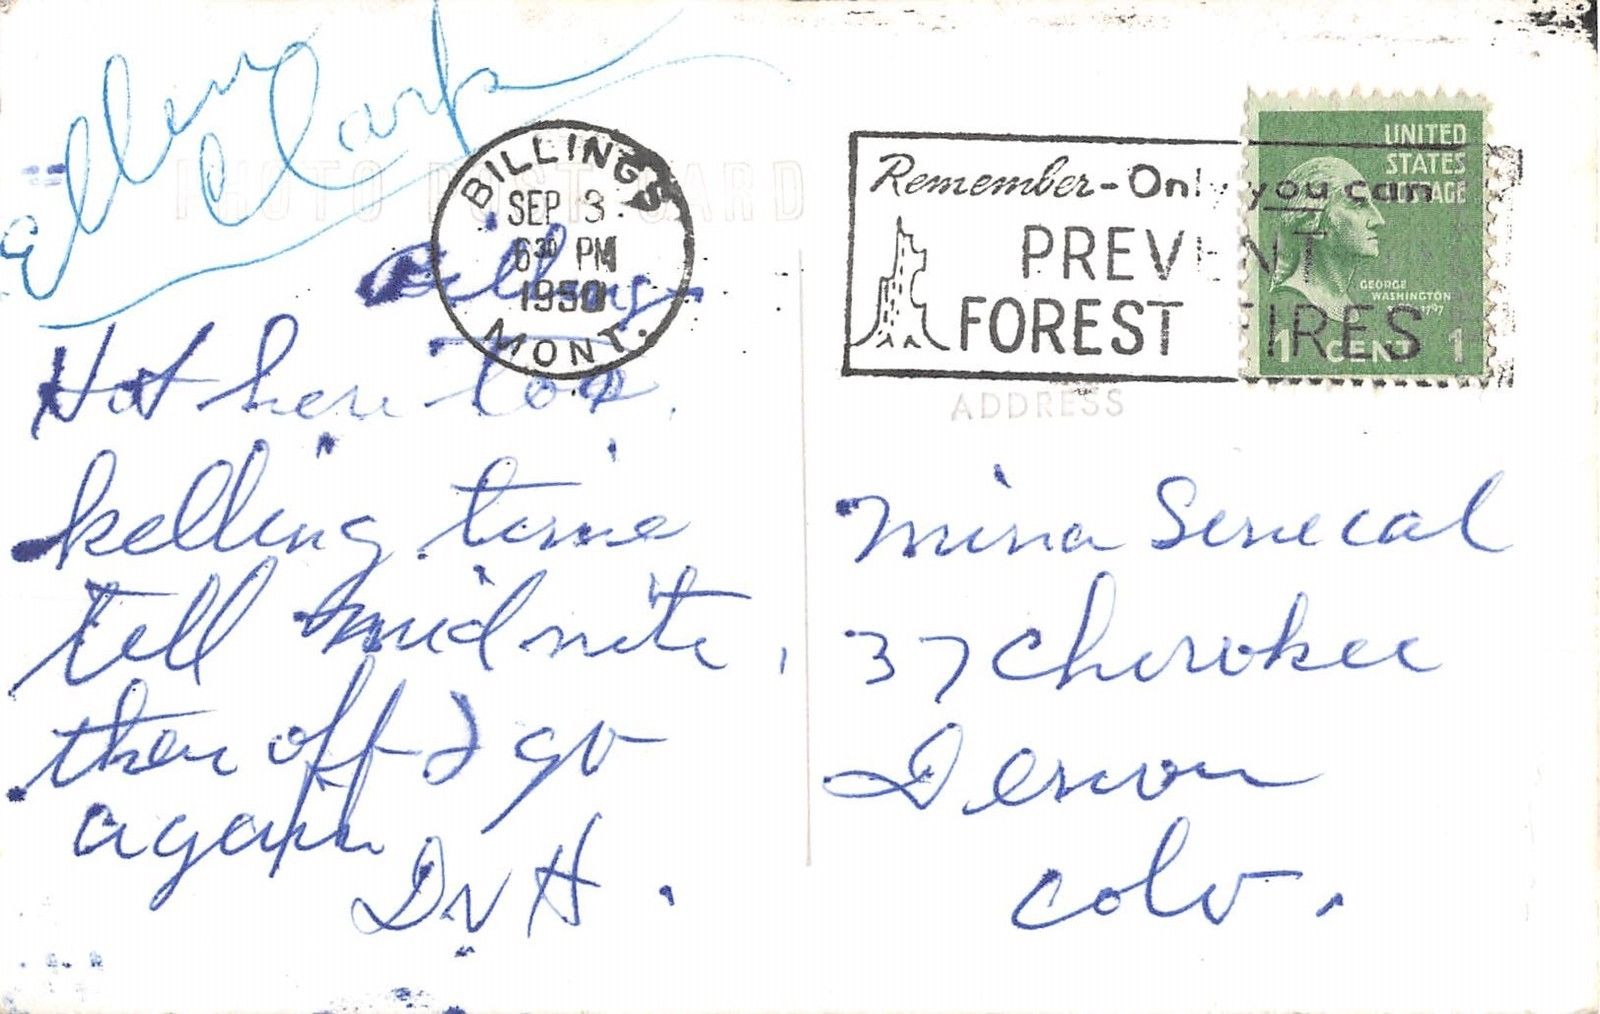 Ellen
Clark
PHOTO POST CARD
Billings
Hot here too.
killing time
till midnite,
then off I go
again
DVH.
BILLINGS
SEP 3
630 PM
1950
MONT.
Remember-Only you can
PREVENT
FOREST FIRES
UNITED
STATES
POSTAGE
GEORGE
WASHINGTON
1 CENT 1
ADDRESS
Mina Senecal
37 Cherokee
Denver
Colo.